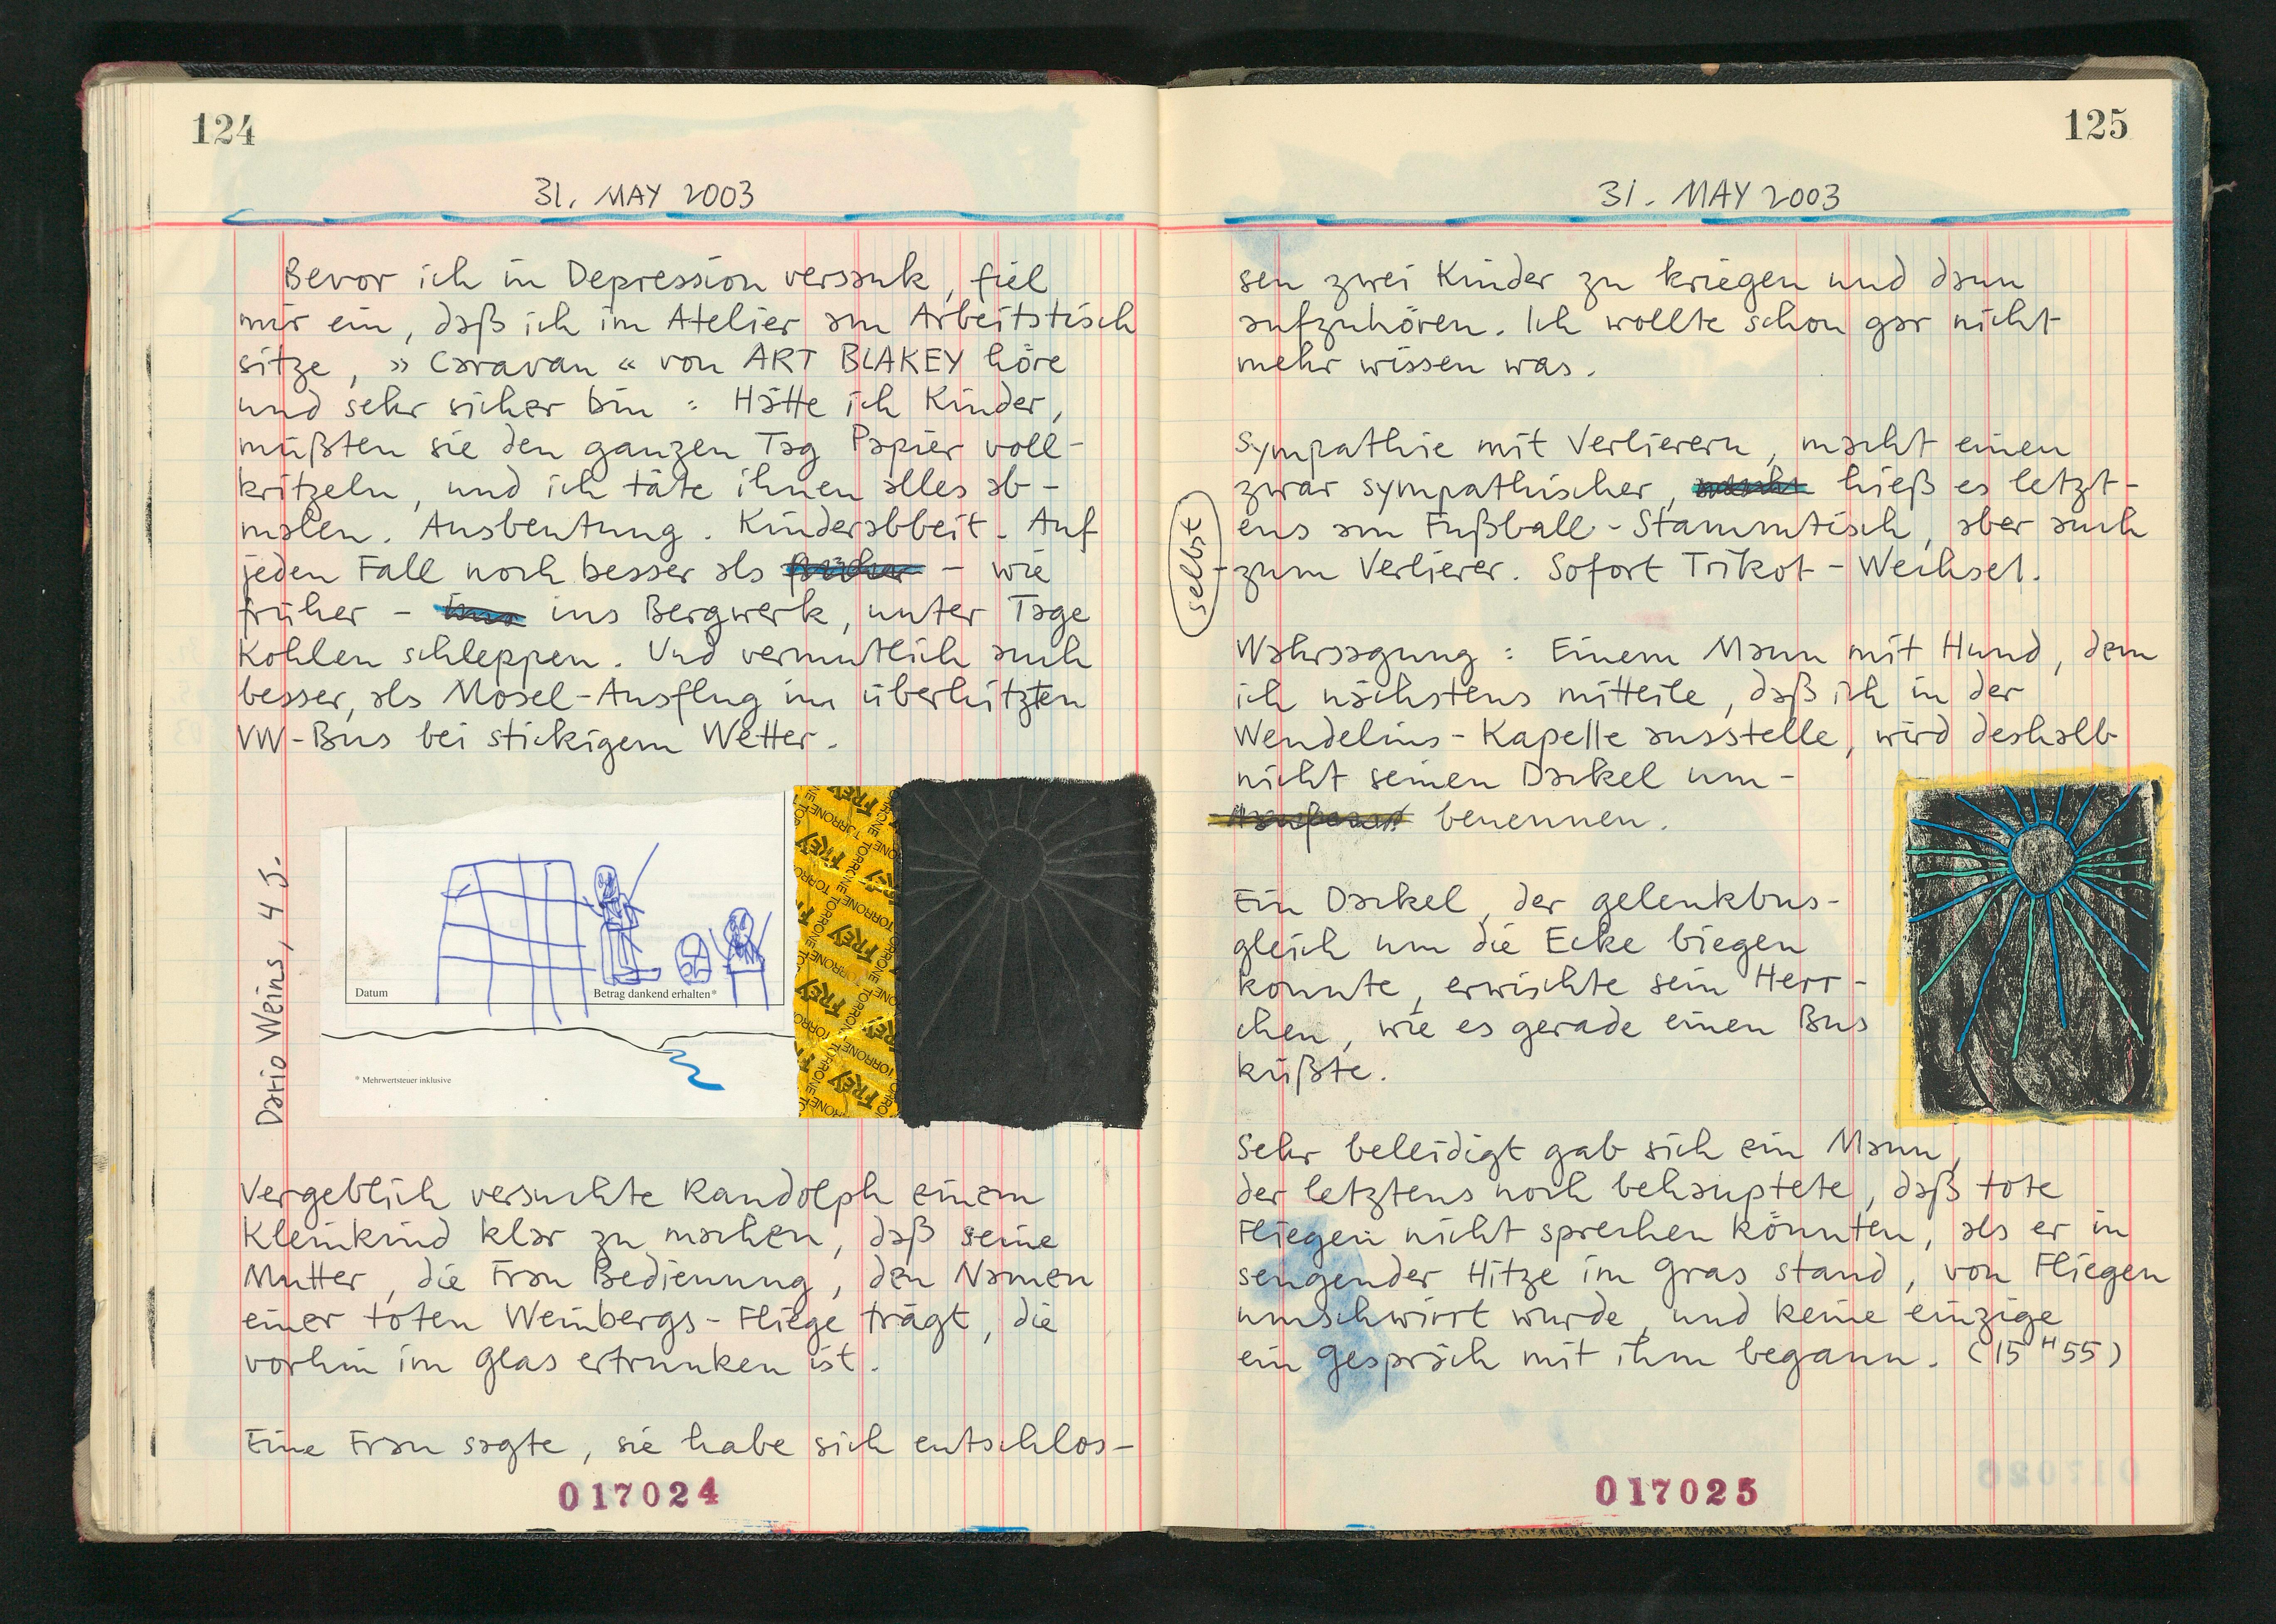 124
31. MAY 2003
Bevor ich in Depression versank, fiel
mir ein, daß ich im Atelier am Arbeitstisch
sitze, »Caravan« von ART BLAKEY höre
und sehr sicher bin: Hätte ich Kinder,
müßten sie den ganzen Tag Papier voll-
kritzeln, und ich täte ihnen alles ab-
malen. Ausbeutung. Kinderabbeit. Auf
jeden Fall noch besser als früher – wie
früher – ins Bergwerk, unter Tage
Kohlen schleppen. Und vermutlich auch
besser, als Mosel-Ausflug im überhitzten
VW-Bus bei stickigem Wetter.
Dario Weins, 4 J.
Datum
Betrag dankend erhalten*
* Mehrwertsteuer inklusive
FREY TORRONE
Vergeblich versuchte Randolph einem
Kleinkind klar zu machen, daß seine
Mutter, die Frau Bedienung, den Namen
einer toten Weinbergs-Fliege trägt, die
vorhin im Glas ertrunken ist.
Eine Frau sagte, sie habe sich entschlos-
017024
125
31. MAY 2003
sen zwei Kinder zu kriegen und dann
aufzuhören. Ich wollte schon gar nicht
mehr wissen was.
Sympathie mit Verlierern, macht einen
zwar sympathischer, macht hieß es letzt-
ens am Fußball-Stammtisch, aber auch
selbst
zum Verlierer. Sofort Trikot-Wechsel.
Wahrsagung: Einem Mann mit Hund, dem
ich nächstens mitteile, daß ich in der
Wendelins-Kapelle ausstelle, wird deshalb
nicht seinen Dackel um-
benennen.
Ein Dackel, der gelenkbus-
gleich um die Ecke biegen
konnte, erwischte sein Herr-
chen, wie es gerade einen Bus
küßte.
Sehr beleidigt gab sich ein Mann,
der letztens noch behauptete, daß tote
Fliegen nicht sprechen könnten, als er in
sengender Hitze im Gras stand, von Fliegen
umschwirrt wurde, und keine einzige
ein Gespräch mit ihm begann. (15 H 55)
017025